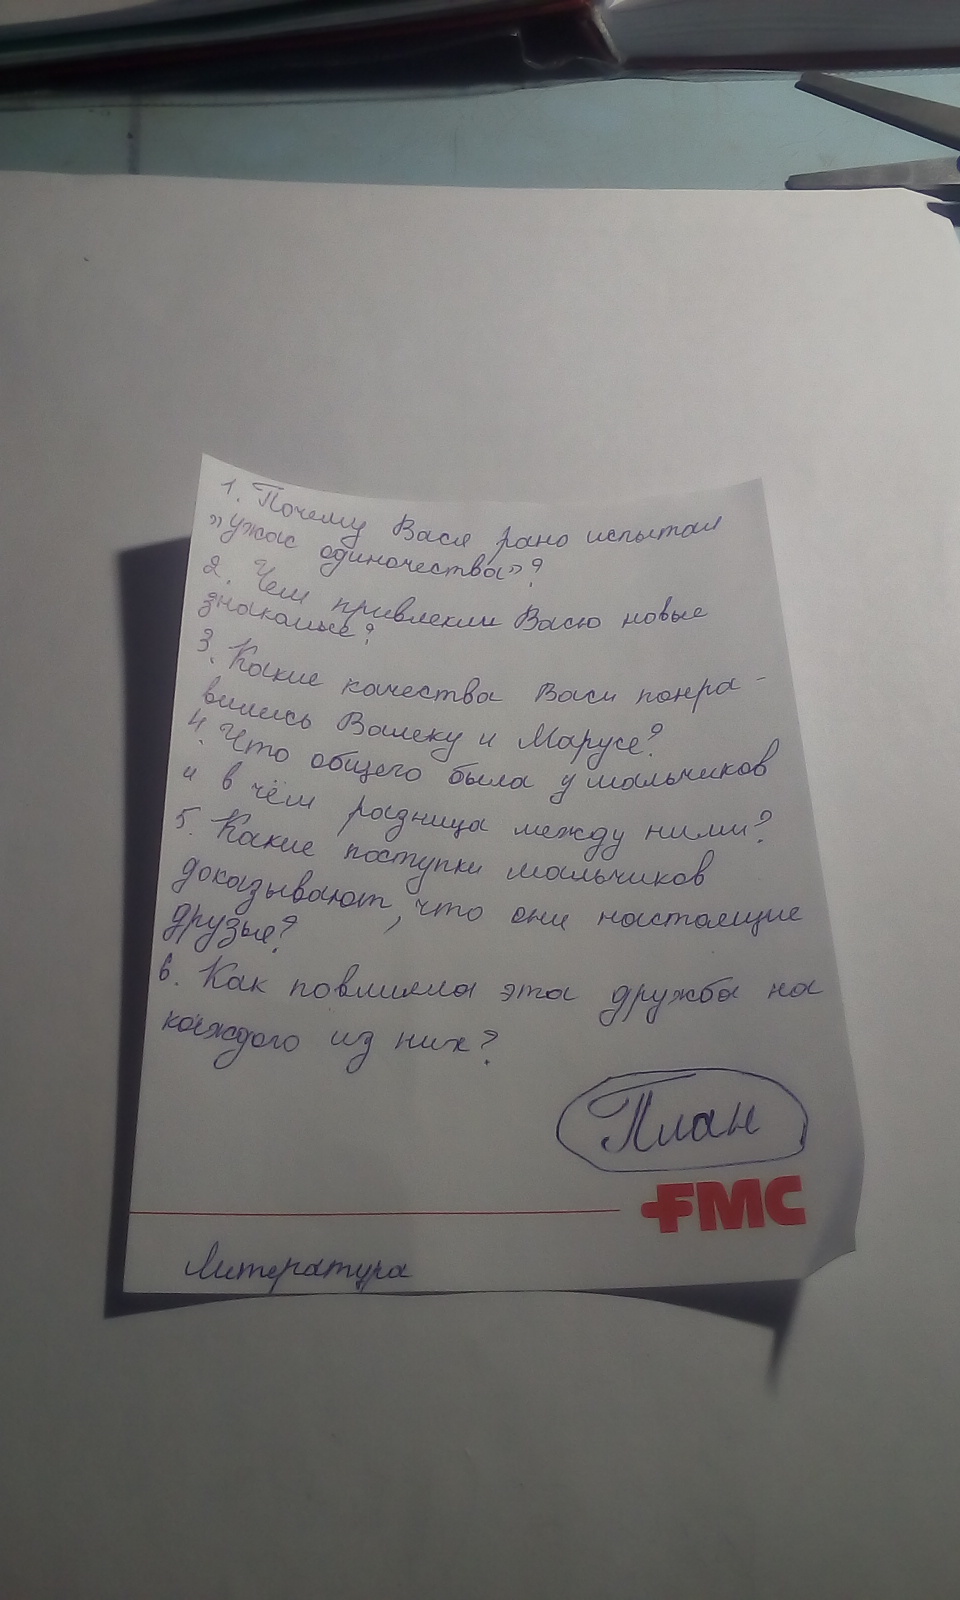 1. Почему Вася рано испытал
„ужас одиночества"?
2. Чем привлекли Васю новые
знакомые?
3. Какие качества Васи понра-
вились Валеку и Марусе?
4. Что общего было у мальчиков
и в чём разница между ними?
5. Какие поступки мальчиков
доказывают, что они настоящие
друзья?
6. Как повлияла эта дружба на
каждого из них?
План
FMC
Литература